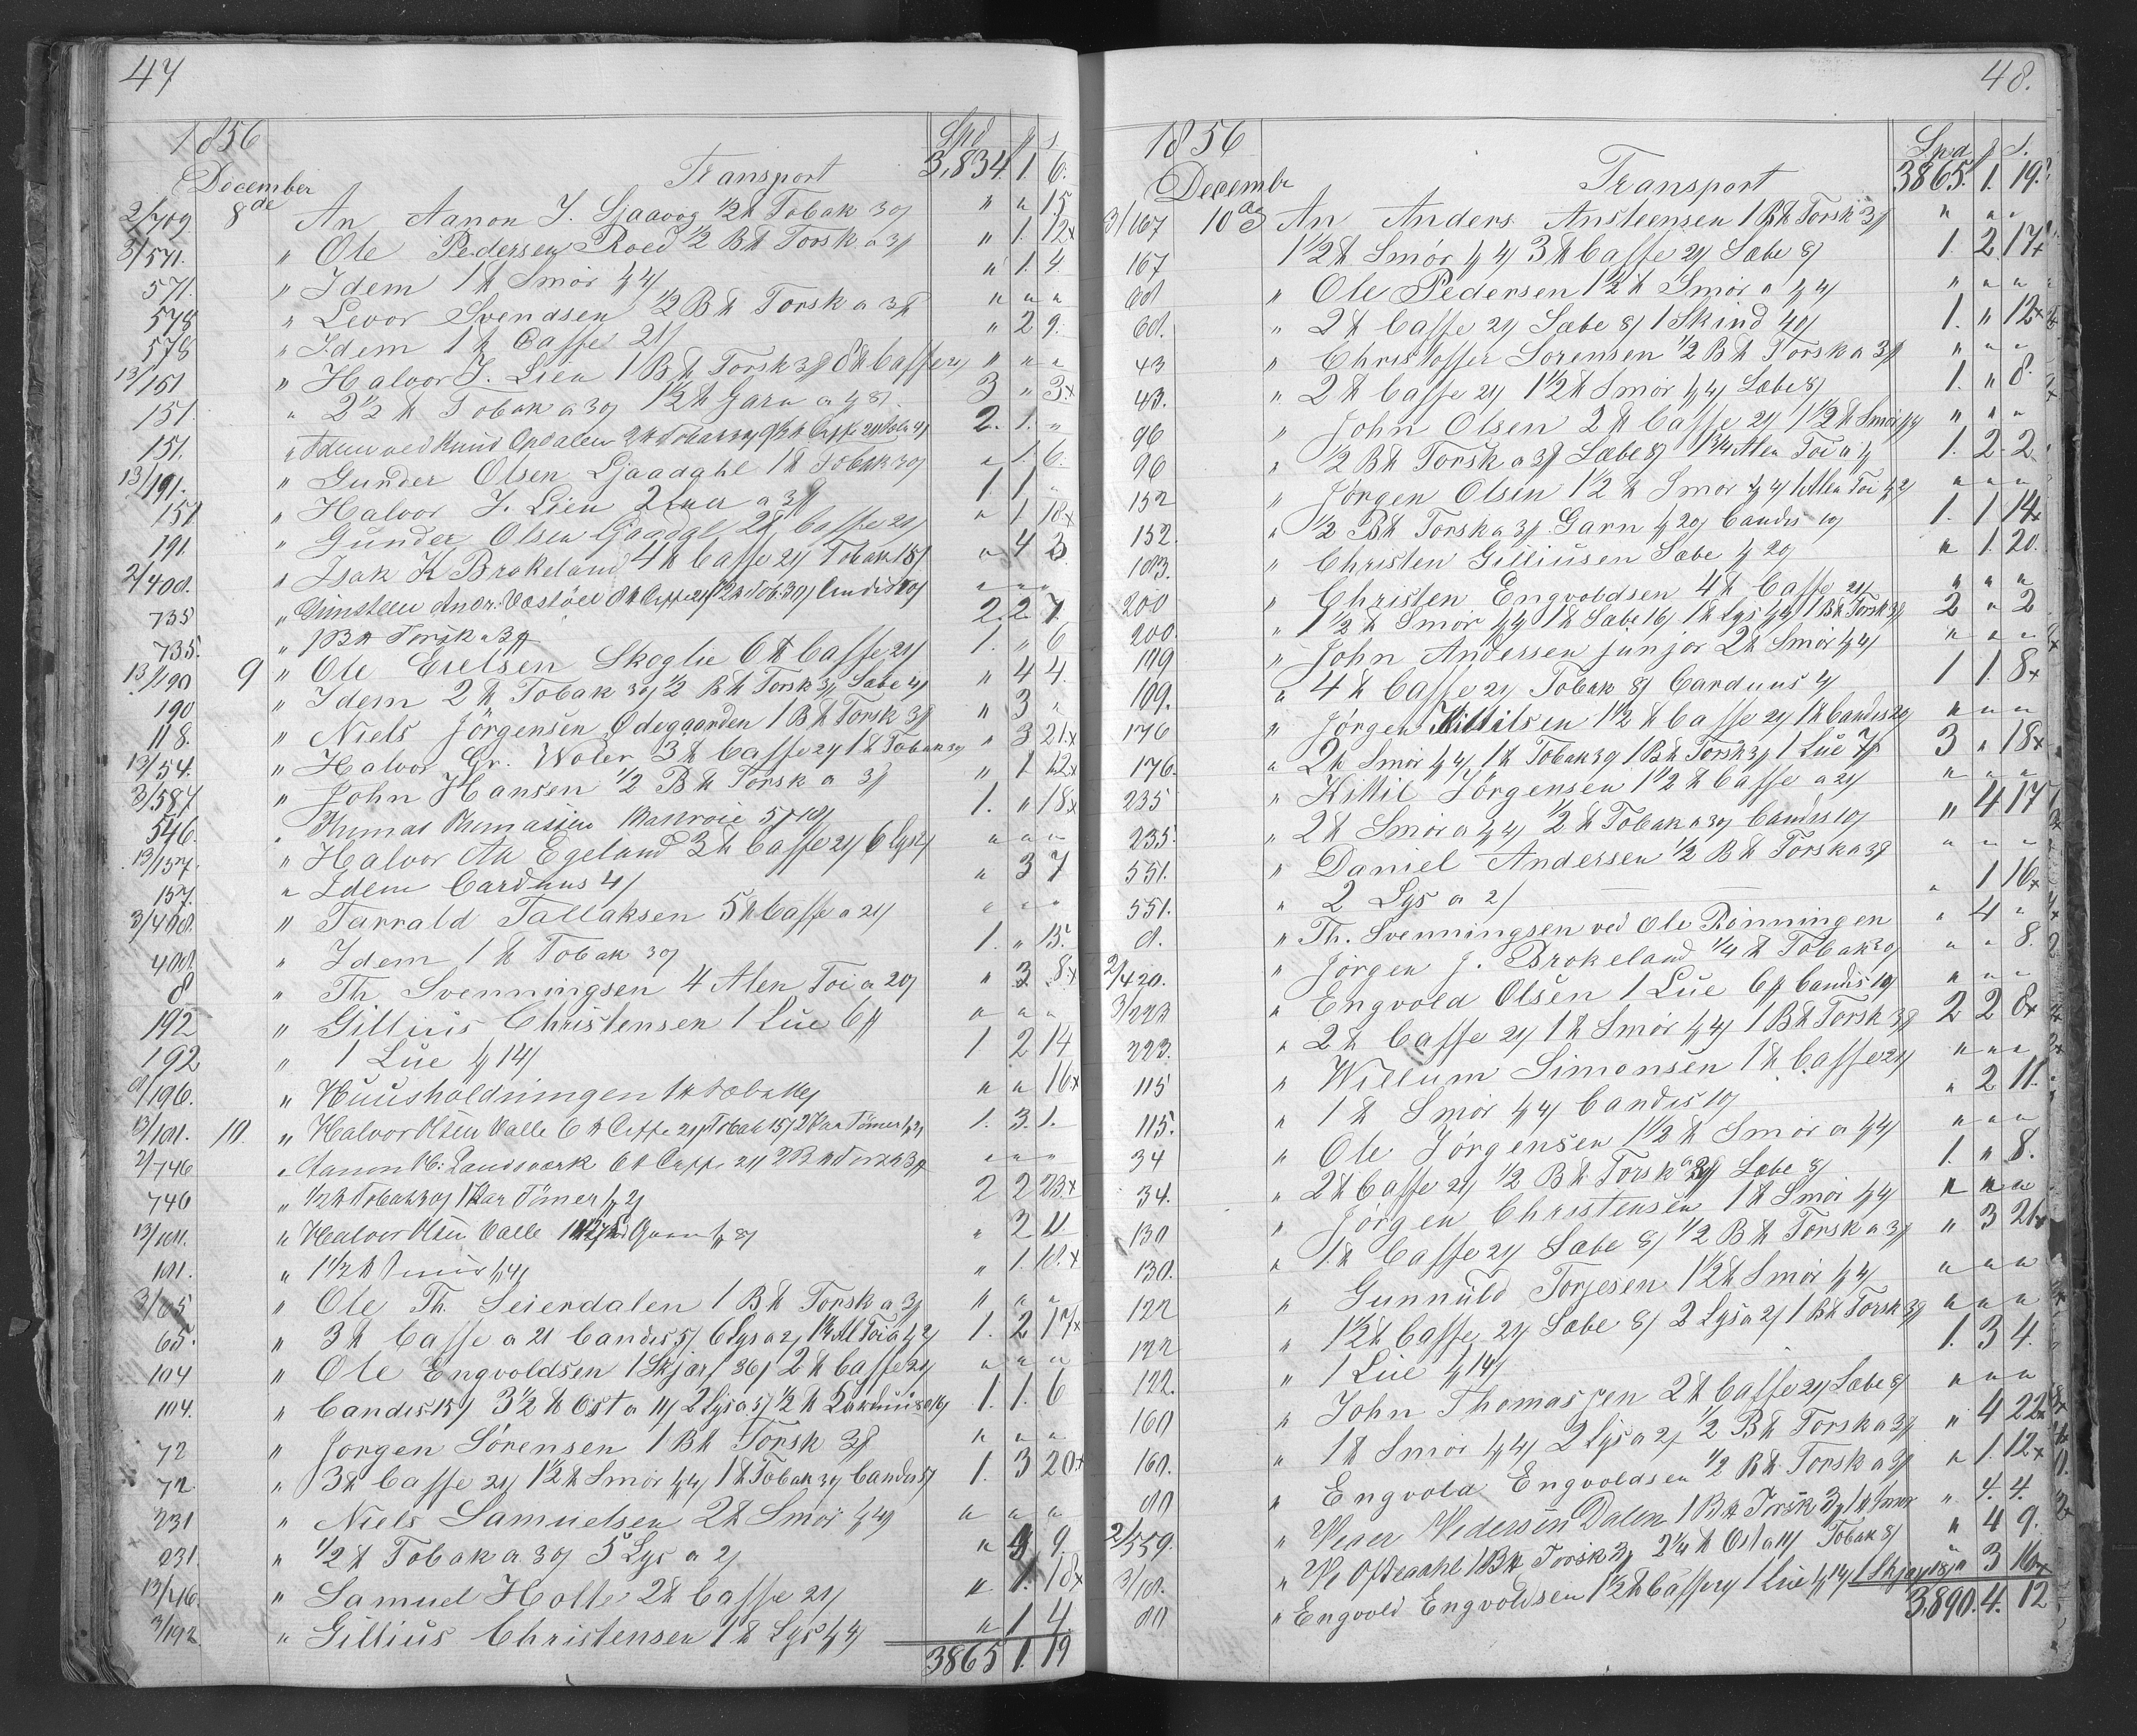 47
1856
December
Spd | f | s
Transport 3,834. 1. 6.
2/709 8de An Aanon J. Ljaavog 1/2 ℔ Tobak 30/ " " 15
3/571. " Ole Pedersen Roed 1/2 B℔ Torsk a 3f " 1. 12x
571. " Idem 1 ℔ Smör 4/ " 1. 4.
578 " Levor Svendsen 1/2 B℔ Torsk a 3f " " "
578 " Idem 1 ℔ Caffe 21/ " 2 9.
13/151 " Halvor J. Lien 1 B℔ Torsk 3f 8 ℔ Caffe 21/ " " "
151. " 2 1/2 ℔ Tobak a 30/ 1 1/2 ℔ Garn a 8/ 3 " 3x
151. " Idem ved Knud Opdalen 2. 1. "
13/191. " Gunder Olsen Ljaadahl 1 ℔ Tobak 30/ " 1. 6.
151 " Halvor J. Lien 2 Luer a 3f 1 1 "
191. " Gunder Olsen Ljaadal 2 ℔ Caffe 21/ " 1 18x
2/400. " Isak K Brokeland 4 ℔ Caffe 21/ Tobak 15/ " 4 3
735 " Gunsteen Andr. Vestöl 8 ℔ Caffe 21/ 1/2 ℔ Tob. 30/ Candis 10/ " " "
735. " 1 B℔ Torsk a 3f 2. 2. 7.
13/190 9 " Ole Eielsen Skoglie 6 ℔ Caffe 21/ 1. " 6
190 " Idem 2 ℔ Tobak 30/ 1/2 B℔ Torsk 3f Sæbe 4/ " 4 4.
118. " Niels Jörgensen Ödegaarden 1 B℔ Torsk 3f " 3 "
13/54. " Halvor Gr. Woler 3 ℔ Caffe 21/ 1 ℔ Tobak 30/ " 3 21x
3/587 " John Hansen 1/2 B℔ Torsk a 3f " 1 12x
546. " Thomas Thomasen Bakroie 5f 10/ 1. " 18x
13/157. " Halvor Aa Egeland 3 ℔ Caffe 21/ 6 Lys 2/ " " "
157. " Idem Carduus 4/ " 3 7
3/400. " Tarrald Tallaksen 5 ℔ Caffe a 21/ " " "
400. " Idem 1 ℔ Tobak 30/ 1. " 15.
8 " Th. Svenningsen 4 Alen Toi a 20/ " 3 8x
192 " Gillius Christensen 1 Lue 6f " " "
192 " 1 Lue 14/ 1 2 14
9/196. " Huusholdningen 1 ℔ Sæbe 16/ " " 16x
13/101. 10. " Halvor Olsen Valle 6 ℔ Caffe 21/ Tobak 15/ 2 Par Tömer 2/ 1. 3. 1.
2/746 " Aanon O: Landsverk 6 ℔ Caffe 21/ 2 B℔ Torsk 3f " " "
746 " 1/2 ℔ Tobak 30/ 1 Par Tömer 2/ 2 2 23x
13/101. " Halvor Olsen Valle Garn 8/ " 2 11
101. " 1 1/2 ℔ Smör 4/ " 1. 18.x
3/65 " Ole Th. Seierdalen 1 B℔ Torsk a 3f " " "
65. " 3 ℔ Caffe a 21 Candis 5/ 6 Lys a 2/ 1 1/4 Al Toi a 2/ 1. 2 17x
104 " Ole Engvoldsen 1 Skjærf 36/ 2 ℔ Caffe 21/ " " "
104. " Candis 15/ 3 1/2 ℔ Ost a 11/ 2 Lys a 5/ 1/2 ℔ Carduus 16/ 1. 1. 6
72 " Jorgen Sörensen 1 B℔ Torsk 3f " " "
72 " 3 ℔ Caffe 21/ 1 1/2 ℔ Smör 4/ 1 ℔ Tobak 30/ Candis 5/ 1. 3 20x
231 " Niels Samuelsen 2 ℔ Smör 4/ " " "
231. " 1/2 ℔ Tobak a 30/ 5 Lys a 2/ " 4 9.
13/216. " Samuel Holte 2 ℔ Caffe 21/ " 1. 18x
3/192. " Gillius Christensen 1 ℔ Lys 4/ " 1 4.
3865 1. 19
48.
1856
Decembr
Spd | f | s.
Transport 3865. 1. 19.
3/167 10de An Anders Ansteensen 1 B℔ Torsk 3f " " "
167 1 1/2 ℔ Smör 4/ 3 ℔ Caffe 21/ Sæbe 8/ 1. 2 17x
60 " Ole Pedersen 1 1/2 ℔ Smör a 4/ " " "
60. " 2 ℔ Caffe 21/ Sæbe 8/ 1 Skind 40/ 1. " 12x
43 " Christoffer Sorensen 1/2 B℔ Torsk a 3f " " "
43. " 2 ℔ Caffe 21/ 1 1/2 ℔ Smör 4/ Sæbe 8/ 1. " 8.
96 " John Olsen 2 ℔ Caffe 21/ 1 1/2 ℔ Smör 4/ " " "
96 " 1/2 B℔ Torsk a 3f Sæbe 8/ 1 3/4 Alen Toi a 1. 2. 2
152 " Jörgen Olsen 1 1/2 ℔ Smör 4/ 1 Alen Toi 2/ " " "
152. " 1/2 B℔ Torsk a 3f Garn 20/ Candis 10/ 1. 1 14x
103. " Christen Gilliusen Sæbe 20/ " 1. 20.
200 " Christen Engvoldsen 4 ℔ Caffe 21/ " " "
200. " 1 1/2 ℔ Smör 4/ 1 ℔ Sæbe 16/ 1 ℔ Lys 4/ 1 B℔ Torsk 3f 2 " 2
109 " John Anderssen junjor 2 ℔ Smör 4/ " " "
109. " 4 ℔ Caffe 21/ Tobak 8/ Carduus 4/ 1 1. 8x
176 " Jörgen Kittilsen 1 1/2 ℔ Caffe 21/ 1 ℔ Candis 20/ " " "
176. " 2 ℔ Smör 4/ 1 ℔ Tobak 30/ 1 B℔ Torsk 3f 1 Lue 7f 3 " 18x
235 " Kittil Jörgensen 1 1/2 ℔ Caffe a 21/ " " "
235. " 2 ℔ Smör a 4/ 1/2 ℔ Tobak a 30/ Candis 10/ " 4 17
551. " Daniel Andersen 1/2 B℔ Torsk a 3f " " "
551. " 2 Lys a 2/ " 1 16x
8. " Th. Svenningsen ved Ole Rönningen " 4 "
2/420. " Jörgen J. Brokeland 1/4 ℔ Tobak 30/ " " 8.
3/223 " Engvold Olsen 1 Lue 6f Candis 10/ " " "
223. " 2 ℔ Caffe 21/ 1 ℔ Smör 4/ 1 B℔ Torsk 3f 2 2 8x
115 " Willum Simonsen 1 ℔ Caffe 21/ " " "
115. " 1 ℔ Smör 4/ Candis 10/ " 2 11.
34 " Ole Jörgensen 1 1/2 ℔ Smör a 4/ " " "
34. " 2 ℔ Caffe 21/ 1/2 B℔ Torsk a 3f Sæbe 8/ 1. " 8.
130 " Jörgen Christensen 1 ℔ Smör 4/ " " "
130. " 1 ℔ Caffe 21/ Sæbe 8/ 1/2 B℔ Torsk a 3f " 3 21x
122 " Gunnuld Torjesen 1 1/2 ℔ Smör 4/ " " "
122 " 1 1/2 ℔ Caffe 21/ Sæbe 8/ 2 Lys a 2/ 1 B℔ Torsk 3f " " "
122. " 1 Lue 14/ 1. 3 4.
160 " John Thomassen 2 ℔ Caffe 21/ Sæbe 8/ " " "
160. " 1 ℔ Smör 4/ 2 Lys a 2/ 1/2 B℔ Torsk a 3f " 4 22x
80 " Engvold Engvoldsen 1/2 B℔ Torsk a 3f " 1. 12x
2/559. " Peder Pedersen Dalen 1 B℔ Torsk 3f 1 ℔ Smör " 4. 4.
3/18. " Ole Ofdedahl 1 B℔ Torsk 3f 2 1/4 ℔ Ost a 11/ Tobak 8/ " 4 9.
80 " Engvold Engvoldsen 1 1/2 ℔ Caffe 21/ 1 Lue 14/ 1 Skjærf 18/ " 3 16x
3.890. 4. 12